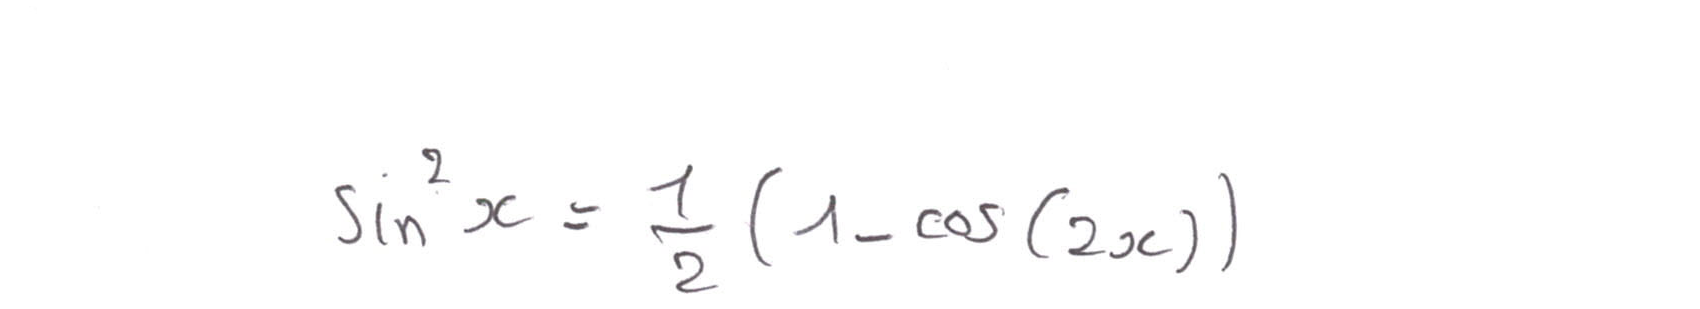 sin²x = 1/2 (1 - cos(2x))